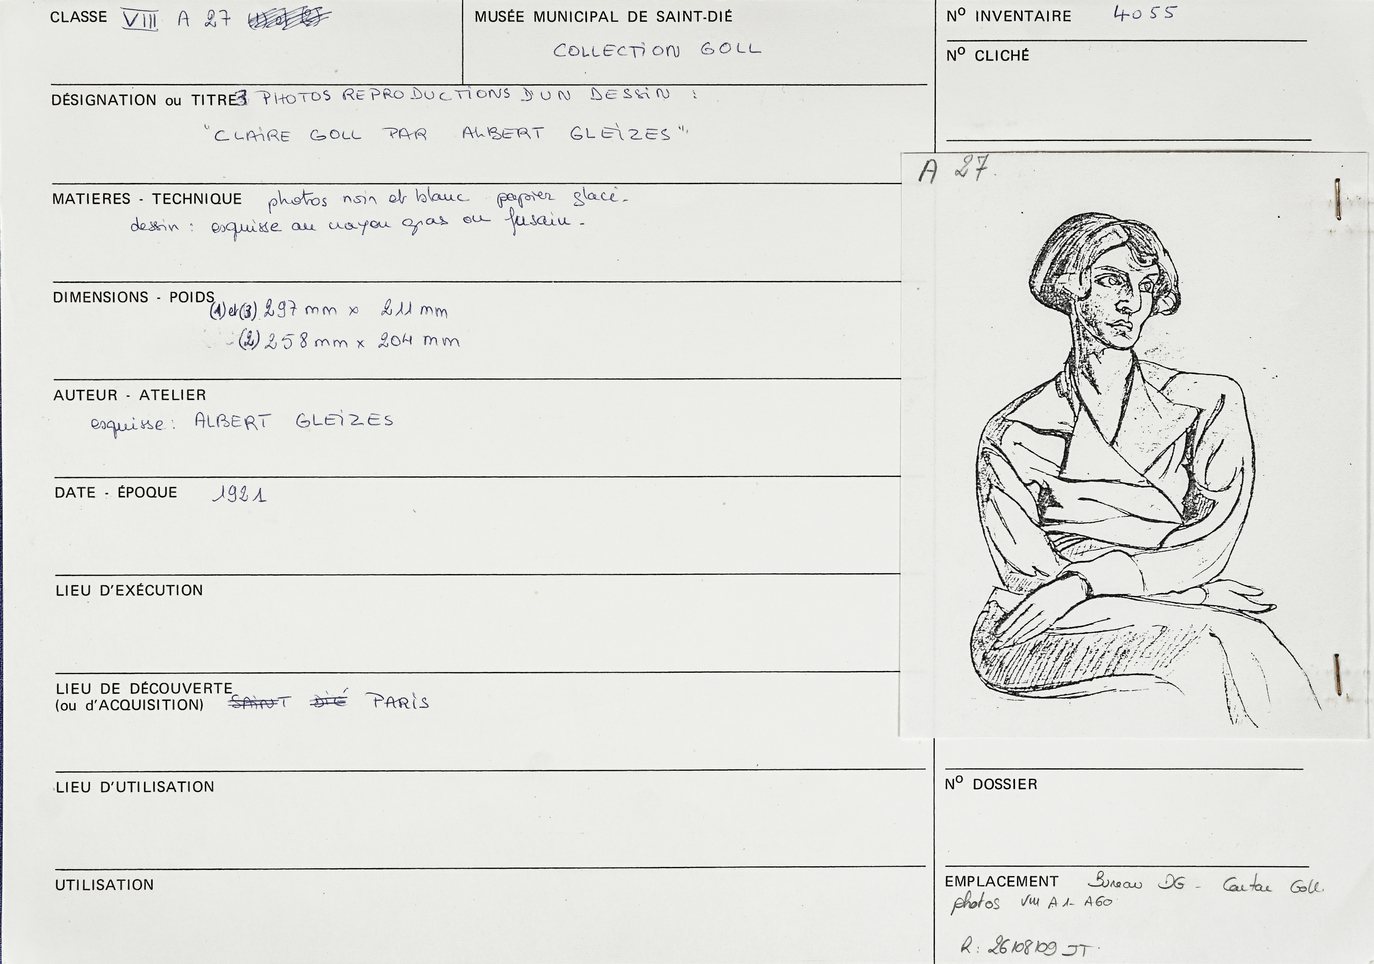 CLASSE VIII A 27
MUSÉE MUNICIPAL DE SAINT-DIÉ
COLLECTION GOLL
Nº INVENTAIRE 4055
Nº CLICHÉ
DÉSIGNATION ou TITRE 3 PHOTOS REPRODUCTIONS D'UN DESSIN :
"CLAIRE GOLL PAR ALBERT GLEIZES".
MATIERES - TECHNIQUE photos noir et blanc papier glacé.
dessin : esquisse au crayon gras ou fusain.
DIMENSIONS - POIDS
(1) et (3) 297 mm x 211 mm
(2) 258 mm x 204 mm
AUTEUR - ATELIER
esquisse : ALBERT GLEIZES
DATE - ÉPOQUE 1921
LIEU D'EXÉCUTION
LIEU DE DÉCOUVERTE
(ou d'ACQUISITION) SAINT DIÉ PARIS
LIEU D'UTILISATION
UTILISATION
A 27.
Nº DOSSIER
EMPLACEMENT Bureau DG - Carton Goll.
photos VIII A1- A60
R : 26/08/09 JT.